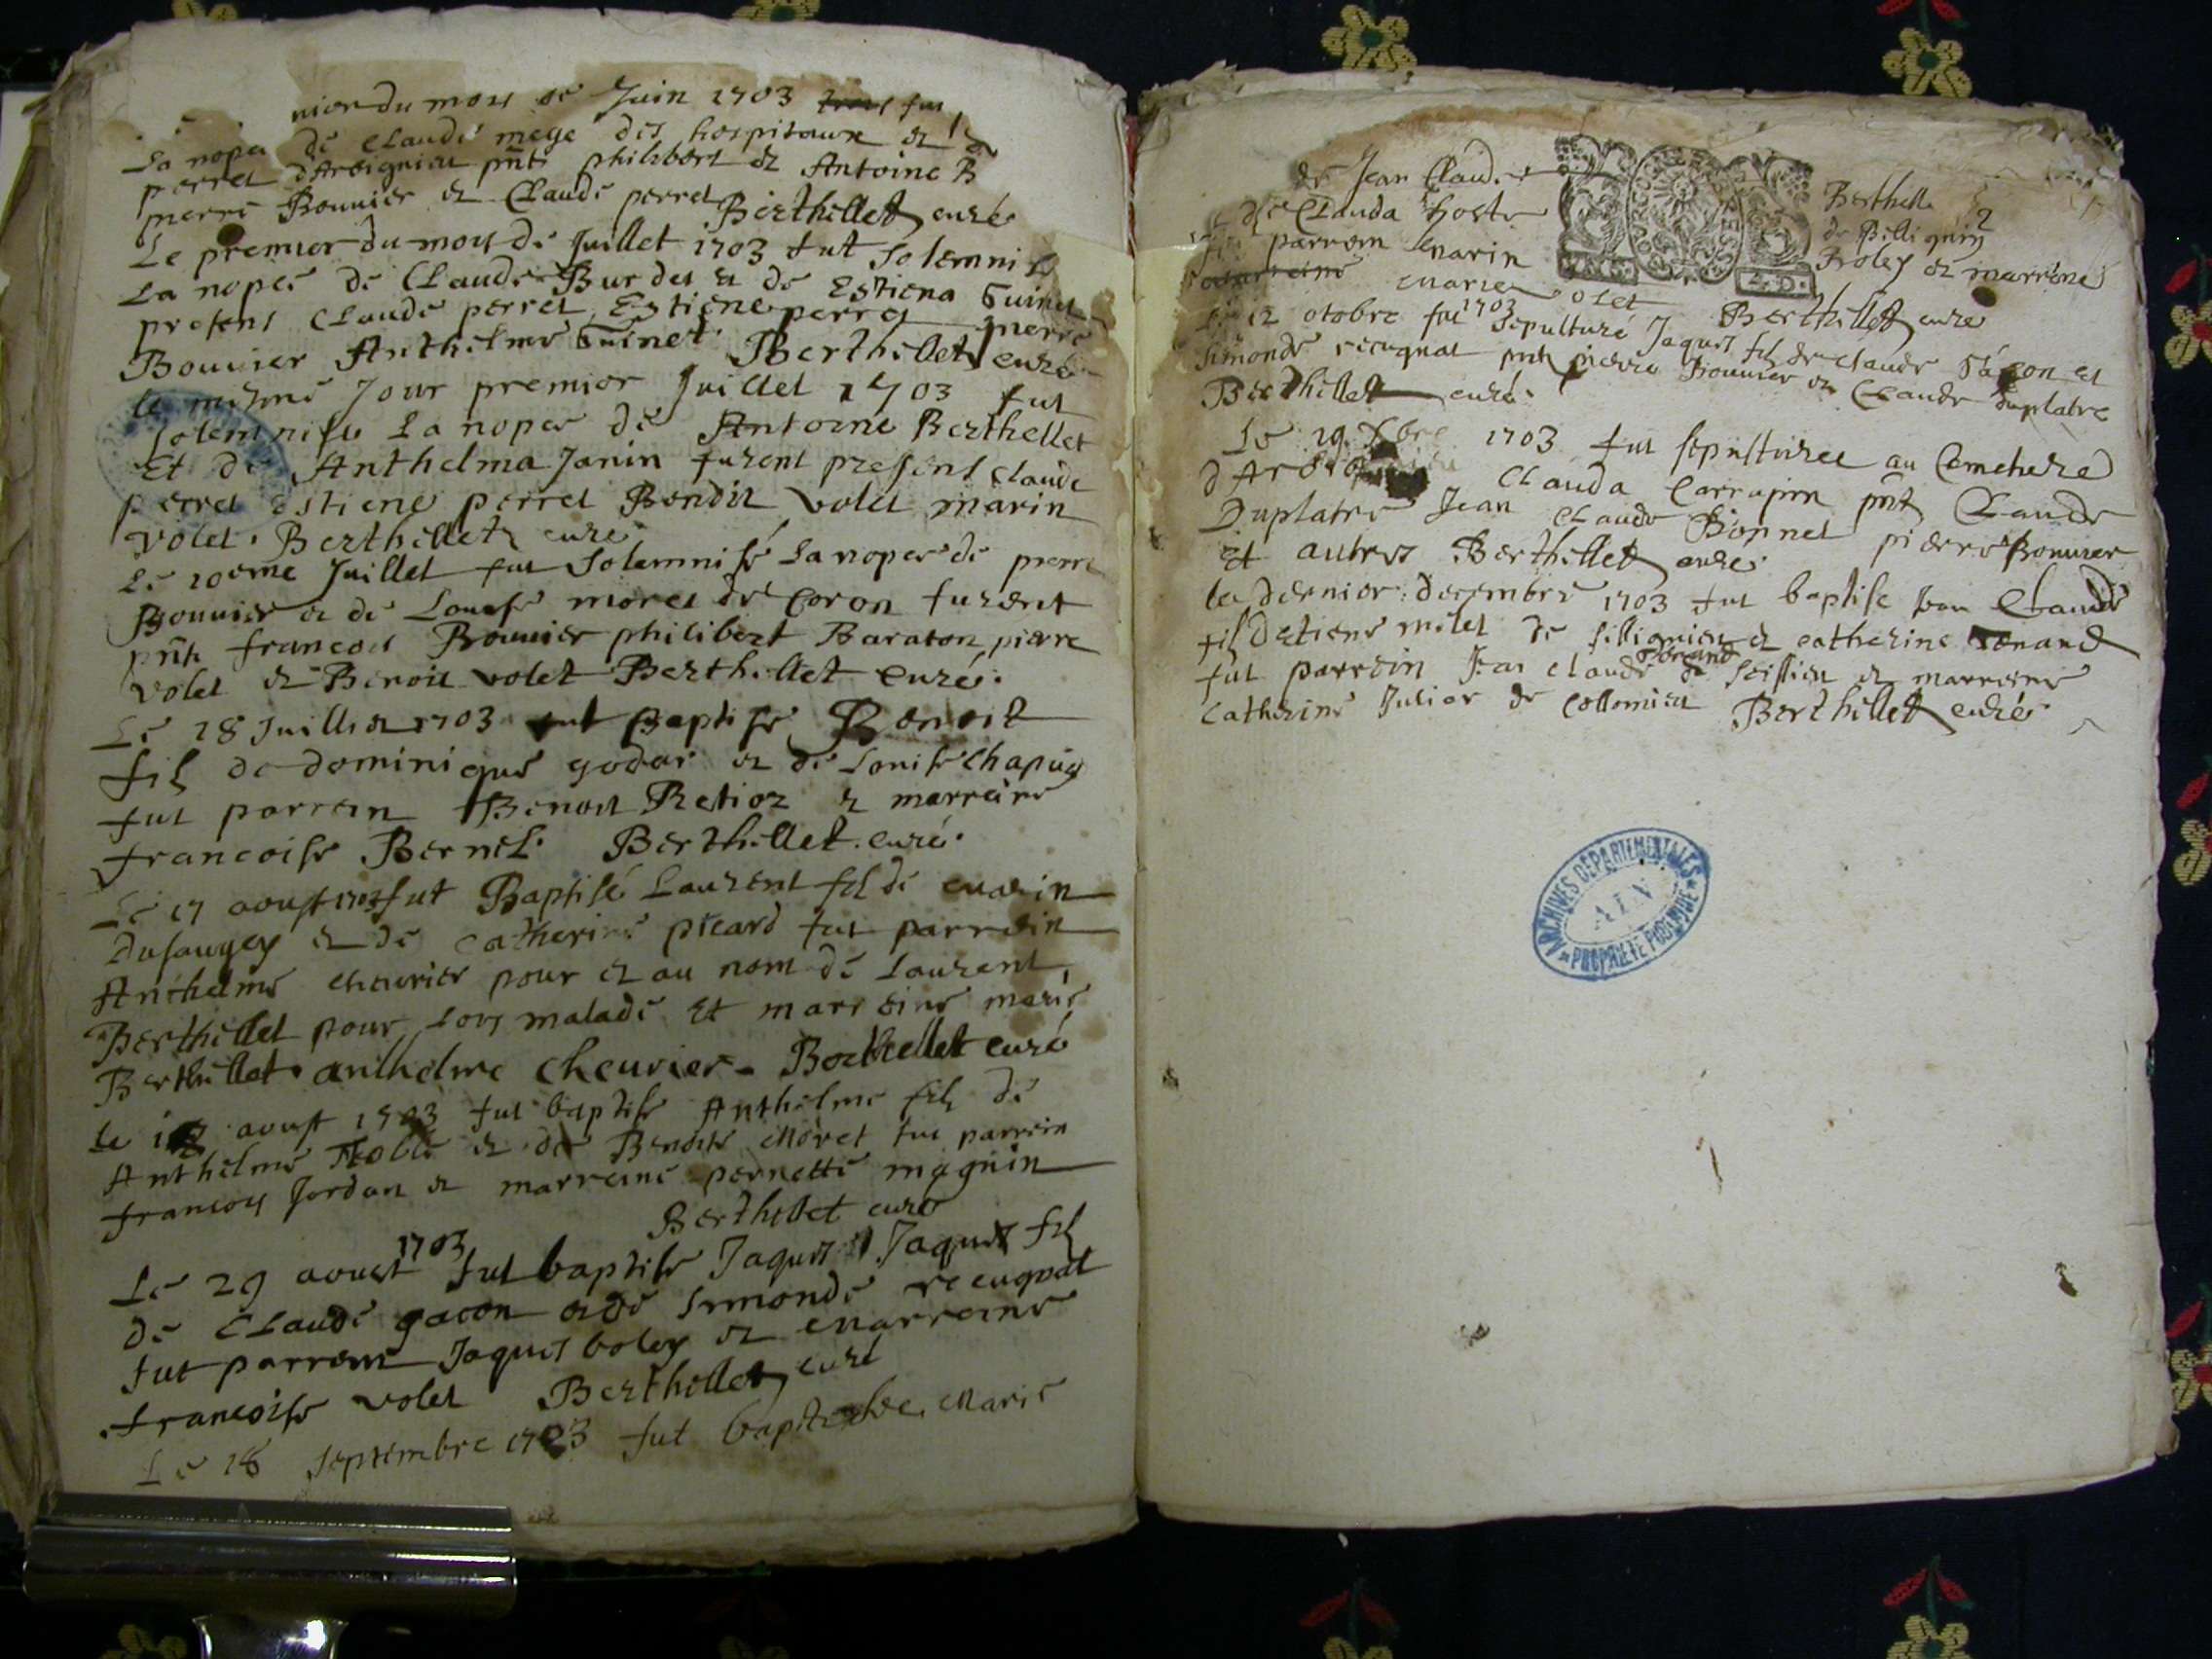 du mois de Juin 1703 fut
La nopce de Claude mege des hospitaux et
perret d'Arbignieu pnt philibert et Antoine B
pierre Bouuier et Claude perret Berthellet curé
Le premier du mois de Juillet 1703 fut solemnise
La nopce de Claude Burdet et de Estiena Guinet
presens Claude perret Estiene perret pierre
Bouuier Anthelme Guinet Berthellet curé
le mesme Jour premier Juillet 1703 fut
solemnise La nopce de Antoine Berthellet
Et de Anthelma Janin furent presens Claude
perret estiene perret Bendit volet marin
volet. Berthellet curé
Le 10eme Juillet fut solemnisé La nopce de pierre
Bouuier et de Louise moret de Coron furent
pnts francois Bouuier philibert Baraton pierre
volet et Benoit volet Berthellet curé.
Le 18 Juillet 1703 fut Baptise Benoit
fils de dominique godar et de Louise Chapuis
fut parrein Benoit Retior et marreine
francoise Bernel. Berthellet curé.
Le 17 aoust 1703 fut Baptisé Laurent fils de marin
Dusaugey et de Catherine picard fut parrein
Anthelme cheurier pour et au nom de Laurent
Berthellet pour lors malade Et marreine marie
Berthellet. anthelme cheurier - Berthellet curé
le aoust 1703 fut baptise Anthelme fils de
Anthelme Noble et de Benoite Moret fut parrein
francois Jordan et marreine pernette magnin
Berthellet curé
Le 29 aoust 1703 fut baptise Jaques Jaques fils
de Claude gacon et de simonde recugnat
fut parrein Jaques boley et marreine
francoise volet Berthellet curé
Le 18 septembre 1703 fut baptisée Marie
de Jean Claude Berthelle
et de Clauda hoste de Pilligniu
parrein marin Roley et marreine
marie olet Berthellet curé
Le 12 otobre 1703 fut sepulturé Jaques fils de claude Gacon et
simonde recugnat pnts pierre Bouuier et Claude duplatre
Berthellet curé.
Le 29 Xbre 1703 fut sepulturee au Cemetiere
d'Arbig Clauda Carrapin pnt Claude
Duplatre Jean Claude Bonnet pierre Bouuier
et autres Berthellet curé.
le dernier decembre 1703 fut baptise Jean Claude
fils d'etiene milet de sillignieu et catherine Tenand
fut parrein Jean claude Tenand de Seissieu et marreine
Catherine Julier de Collomieu Berthellet curé
ARCHIVES DEPARTEMENTALES
AIN
PROPRIETE PUBLIQUE